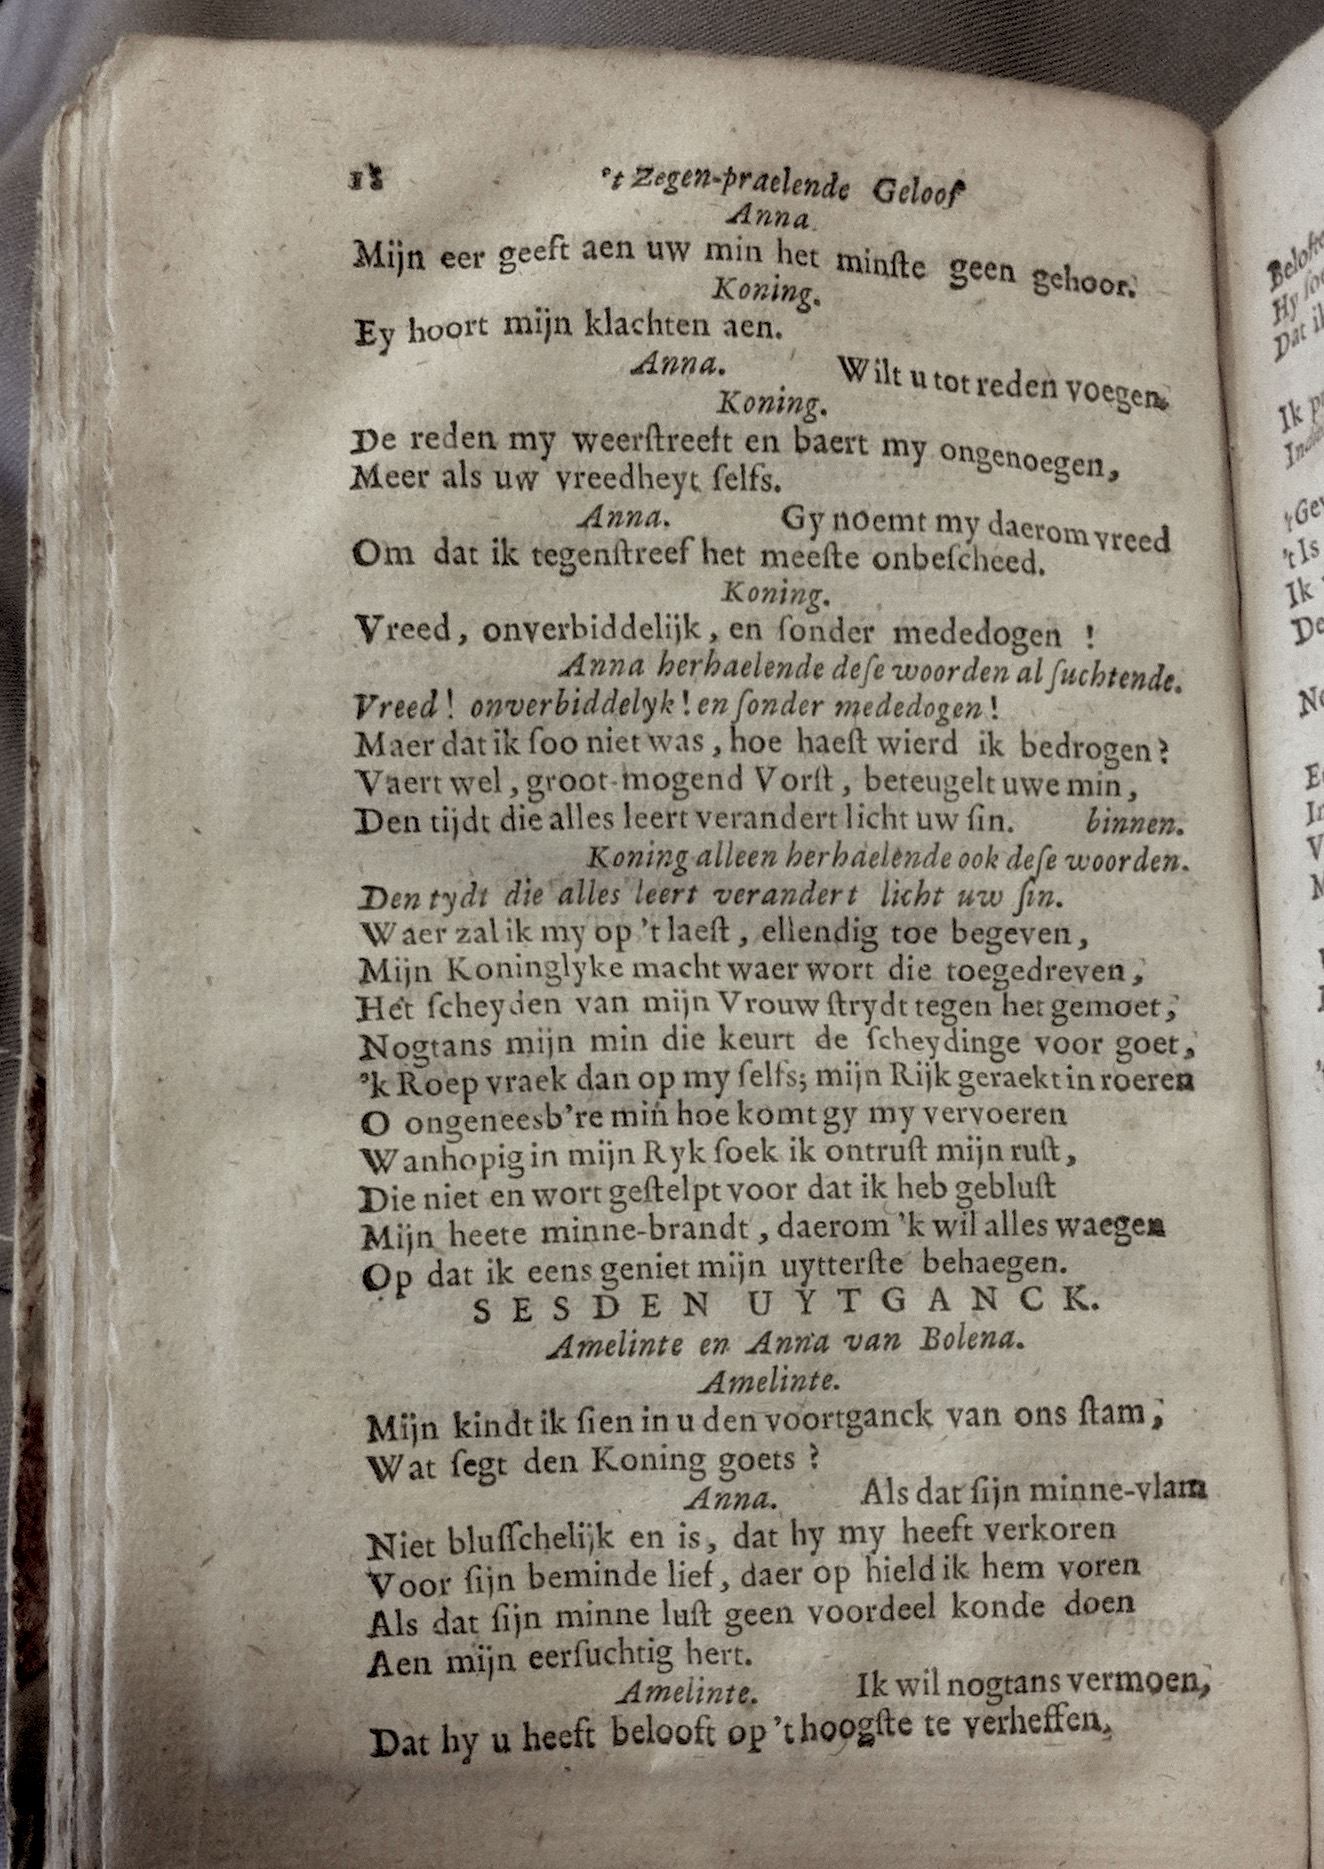 18 't Zegen-praelende Geloof
Anna.
Mijn eer geeft aen uw min het minſte geen gehoor.
Koning.
Ey hoort mijn klachten aen.
Anna. Wilt u tot reden voegen.
Koning.
De reden my weerſtreeft en baert my ongenoegen,
Meer als uw vreedheyt ſelfs.
Anna. Gy noemt my daerom vreed
Om dat ik tegenſtreef het meeſte onbeſcheed.
Koning.
Vreed, onverbiddelijk, en ſonder mededogen !
Anna herhaelende deſe woorden al ſuchtende.
Vreed! onverbiddelyk! en ſonder mededogen!
Maer dat ik ſoo niet was, hoe haeſt wierd ik bedrogen?
Vaert wel, groot-mogend Vorſt, beteugelt uwe min,
Den tijdt die alles leert verandert licht uw ſin. binnen.
Koning alleen herhaelende ook deſe woorden.
Den tydt die alles leert verandert licht uw ſin.
Waer zal ik my op 't laeſt, ellendig toe begeven,
Mijn Koninglyke macht waer wort die toegedreven,
Het ſcheyden van mijn Vrouw ſtrydt tegen het gemoet,
Nogtans mijn min die keurt de ſcheydinge voor goet,
'k Roep vraek dan op my ſelfs; mijn Rijk geraekt in roeren
O ongeneesb're min hoe komt gy my vervoeren
Wanhopig in mijn Ryk ſoek ik ontruſt mijn ruſt,
Die niet en wort geſtelpt voor dat ik heb gebluſt
Mijn heete minne-brandt, daerom 'k wil alles waegen
Op dat ik eens geniet mijn uytterſte behaegen.
SESDEN UYTGANCK.
Amelinte en Anna van Bolena.
Amelinte.
Mijn kindt ik ſien in u den voortganck van ons ſtam,
Wat ſegt den Koning goets ?
Anna. Als dat ſijn minne-vlam
Niet bluſſchelijk en is, dat hy my heeft verkoren
Voor ſijn beminde lief, daer op hield ik hem voren
Als dat ſijn minne luſt geen voordeel konde doen
Aen mijn eerſuchtig hert.
Amelinte. Ik wil nogtans vermoen,
Dat hy u heeft belooft op 't hoogſte te verheffen,